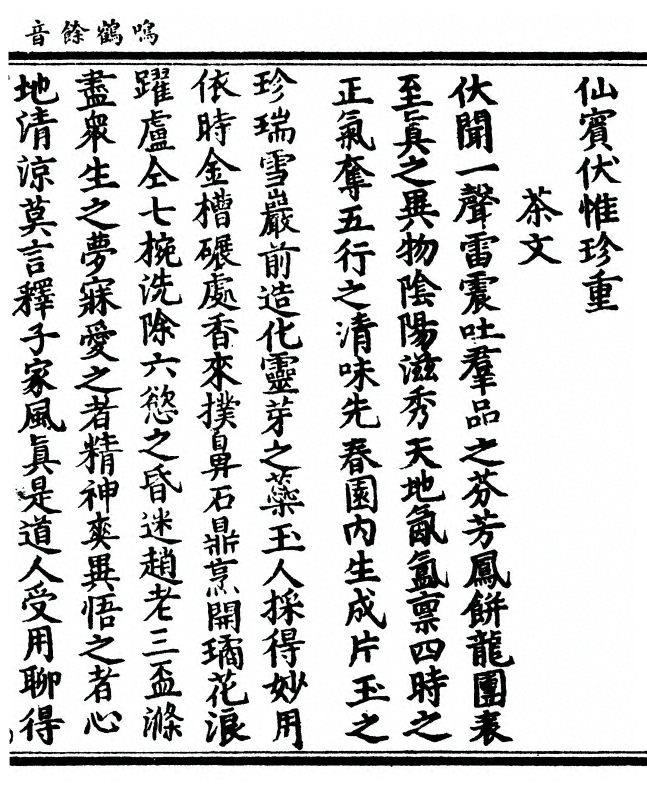 鳴鶴餘音
仙賓伏惟珍重
茶文
伏聞一聲雷震吐羣品之芬芳鳳餅龍團表
至眞之異物陰陽滋秀天地氤氳禀四時之
正氣奪五行之清味先春園内生成片玉之
珍瑞雪巖前造化靈芽之蘂玉人採得妙用
依時金槽碾處香來撲鼻石鼎烹開璚花浪
躍盧仝七椀洗除六慾之昏迷趙老三盃滌
盡衆生之夢寐愛之者精神爽異悟之者心
地清涼莫言釋子家風眞是道人受用聊得